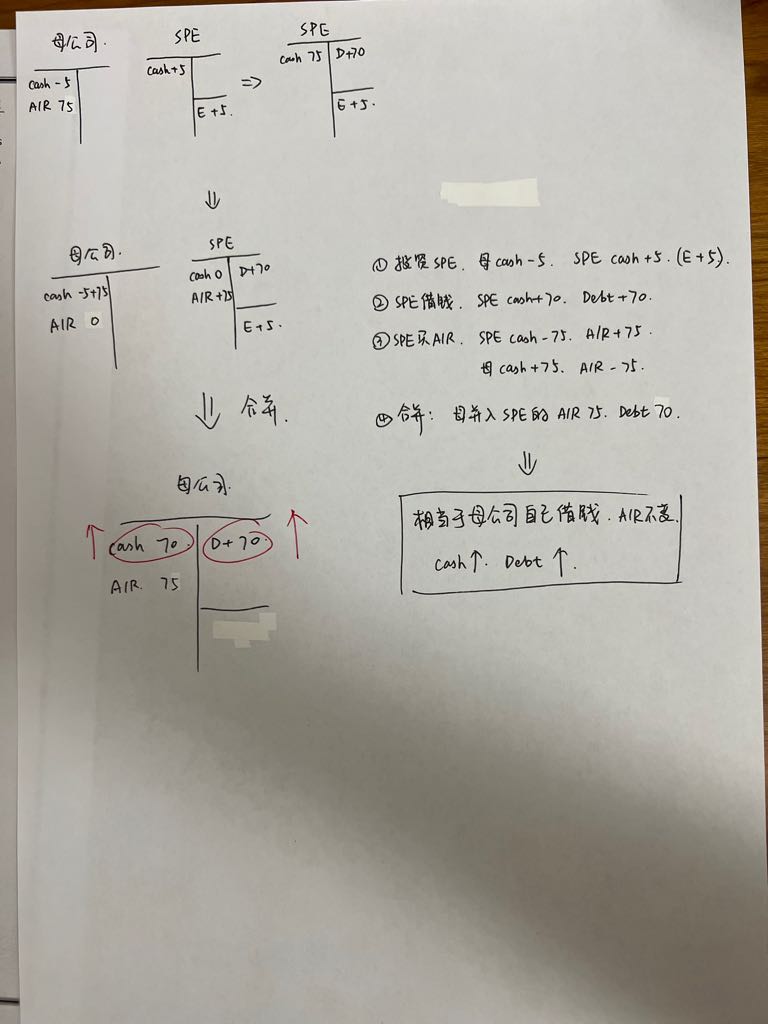 母公司.
cash -5
AIR 75
SPE
cash+5
E+5.
⇒
SPE
cash 75
D+70
E+5.
⇓
母公司.
cash -5+75
AIR 0
SPE
cash 0
AIR+75
D+70
E+5.
⇓ 合并.
母公司.
↑ cash 70
D+70. ↑
AIR. 75
① 投资SPE. 母cash-5. SPE cash+5. (E+5).
② SPE借钱. SPE cash+70. Debt+70.
③ SPE买AIR. SPE cash-75. AIR+75.
母cash+75. AIR-75.
④ 合并: 母并入SPE的 AIR 75. Debt 70.
⇓
相当于母公司自己借钱. AIR不变.
Cash↑. Debt ↑.